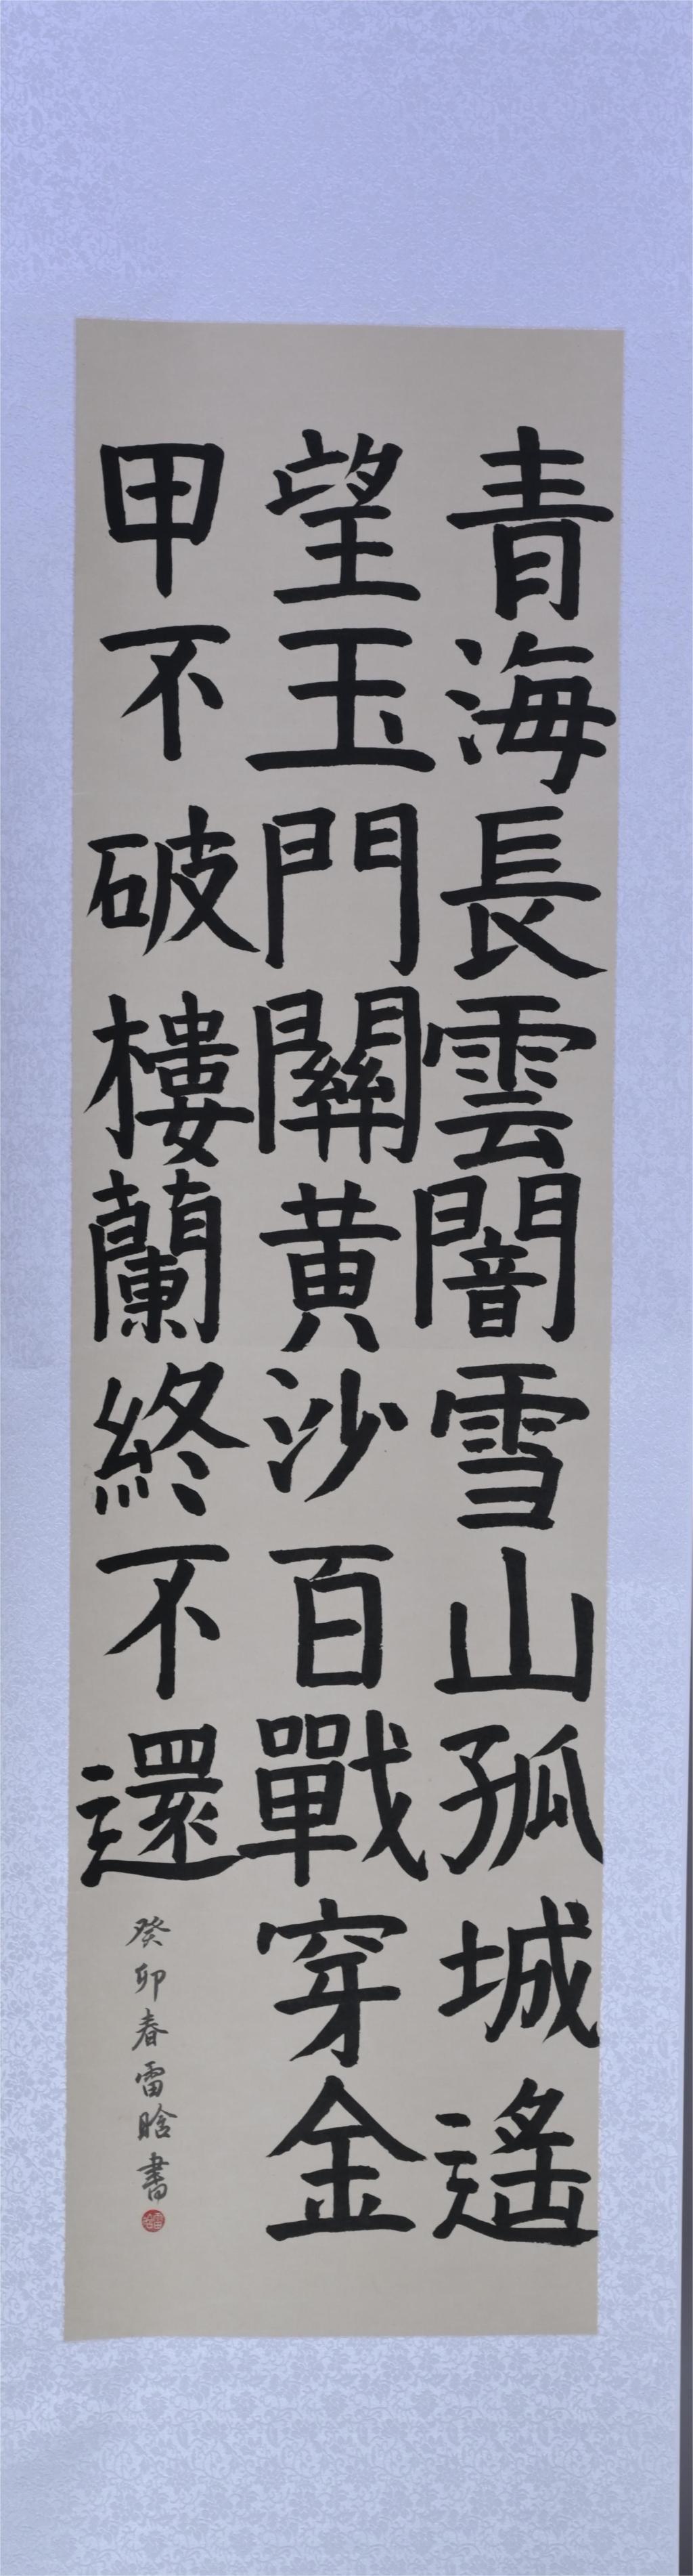 青海長雲闇雪山孤城遙
望玉門關黃沙百戰穿金
甲不破樓蘭終不還
癸卯春雷晗書